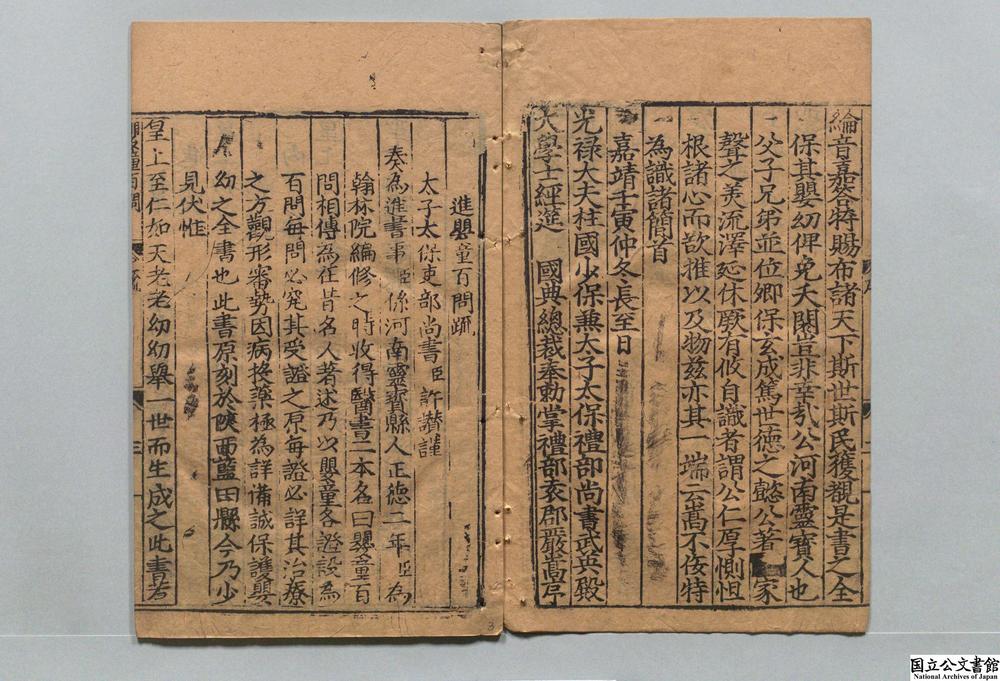 綸音嘉答特賜布諸天下斯世斯民獲覩是書之全
保其嬰幼俾免夭閼豈非幸歟公河南靈寶人也
父子兄弟並位卿保玄成篤世德之懿公著 家
聲之美流澤延休厥有攸自識者謂公仁厚惻怛
根諸心而欲推以及物玆亦其一端云嵩不佞特
為識諸簡首
嘉靖壬寅仲冬長至日
光祿大夫柱國少保兼太子太保禮部尚書武英殿
大學士經筵 國典總裁奉勅掌禮部袁郡嚴嵩序
進嬰童百問疏
太子太保吏部尚書臣許讚謹
奏為進書事臣係河南靈寶縣人正德二年臣為
翰林院編修之時收得醫書一本名曰嬰童百
問相傳為在昔名人著述乃以嬰童各證設為
百問每問必究其受證之原每證必詳其治療
之方觀形審勢因病換藥極為詳備誠保護嬰
幼之全書也此書原刻於陝西藍田縣今乃少
見伏惟
皇上至仁如天老老幼幼舉一世而生成之此書若
嬰童百問
三
3
国立公文書館
National Archives of Japan